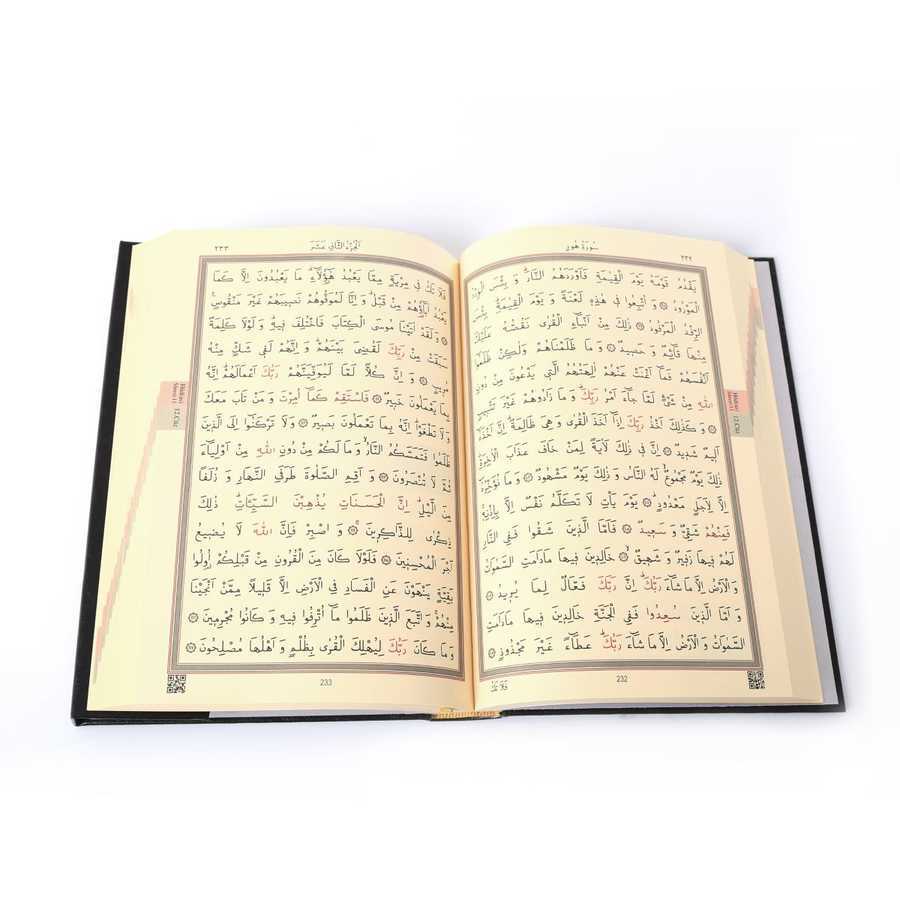 سُورَةُ هُودٍ
٢٣٢
يَقْدُمُ قَوْمَهُ يَوْمَ الْقِيٰمَةِ فَاَوْرَدَهُمُ النَّارَۜ وَ بِئْسَ الْوِرْدُ
الْمَوْرُودُ ﴿٩٨﴾ وَ اُتْبِعُوا فٖي هٰذِهٖ لَعْنَةً وَ يَوْمَ الْقِيٰمَةِۜ بِئْسَ
الرِّفْدُ الْمَرْفُودُ ﴿٩٩﴾ ذٰلِكَ مِنْ اَنْبَٓاءِ الْقُرٰى نَقُصُّهُ عَلَيْكَ
مِنْهَا قَٓائِمٌ وَ حَصٖيدٌ ﴿١٠٠﴾ وَ مَا ظَلَمْنَاهُمْ وَلٰكِنْ ظَلَمُٓوا
اَنْفُسَهُمْ فَمَٓا اَغْنَتْ عَنْهُمْ اٰلِهَتُهُمُ الَّتٖي يَدْعُونَ مِنْ دُونِ
اللّٰهِ مِنْ شَيْءٍ لَمَّا جَٓاءَ اَمْرُ رَبِّكَۜ وَ مَا زَادُوهُمْ غَيْرَ تَتْبٖيبٍ
﴿١٠١﴾ وَ كَذٰلِكَ اَخْذُ رَبِّكَ اِذَٓا اَخَذَ الْقُرٰى وَ هِيَ ظَالِمَةٌۜ اِنَّ اَخْذَهُٓ
اَلٖيمٌ شَدٖيدٌ ﴿١٠٢﴾ اِنَّ فٖي ذٰلِكَ لَاٰيَةً لِمَنْ خَافَ عَذَابَ الْاٰخِرَةِۜ
ذٰلِكَ يَوْمٌ مَجْمُوعٌۙ لَهُ النَّاسُ وَ ذٰلِكَ يَوْمٌ مَشْهُودٌ ﴿١٠٣﴾ وَ مَا نُؤَخِّرُهُٓ
اِلَّا لِاَجَلٍ مَعْدُودٍۜ ﴿١٠٤﴾ يَوْمَ يَاْتِ لَا تَكَلَّمُ نَفْسٌ اِلَّا بِاِذْنِهٖۚ
فَمِنْهُمْ شَقِيٌّ وَ سَعٖيدٌ ﴿١٠٥﴾ فَاَمَّا الَّذٖينَ شَقُوا فَفِي النَّارِ
لَهُمْ فٖيهَا زَفٖيرٌ وَ شَهٖيقٌۙ ﴿١٠٦﴾ خَالِدٖينَ فٖيهَا مَادَامَتِ السَّمٰوَاتُ
وَ الْاَرْضُ اِلَّا مَا شَٓاءَ رَبُّكَۜ اِنَّ رَبَّكَ فَعَّالٌ لِمَا يُرٖيدُ ﴿١٠٧﴾
وَ اَمَّا الَّذٖينَ سُعِدُوا فَفِي الْجَنَّةِ خَالِدٖينَ فٖيهَا مَادَامَتِ
السَّمٰوَاتُ وَ الْاَرْضُ اِلَّا مَا شَٓاءَ رَبُّكَۜ عَطَٓاءً غَيْرَ مَجْذُوذٍ ﴿١٠٨﴾
فَلَا تَكُ
232
اَلْجُزْءُ الثَّانٖي عَشَرَ
٢٣٣
فَلَا تَكُ فٖي مِرْيَةٍ مِمَّا يَعْبُدُ هٰٓؤُ۬لَٓاءِۜ مَا يَعْبُدُونَ اِلَّا كَمَا
يَعْبُدُ اٰبَٓاؤُ۬هُمْ مِنْ قَبْلُۜ وَ اِنَّا لَمُوَفُّوهُمْ نَصٖيبَهُمْ غَيْرَ مَنْقُوصٍ۟
﴿١٠٩﴾ وَ لَقَدْ اٰتَيْنَا مُوسَى الْكِتَابَ فَاخْتُلِفَ فٖيهِۜ وَ لَوْلَا كَلِمَةٌ
سَبَقَتْ مِنْ رَبِّكَ لَقُضِيَ بَيْنَهُمْۜ وَ اِنَّهُمْ لَفٖي شَكٍّ مِنْهُ
مُرٖيبٍ ﴿١١٠﴾ وَ اِنَّ كُلًّا لَمَّا لَيُوَفِّيَنَّهُمْ رَبُّكَ اَعْمَالَهُمْۜ اِنَّهُ
بِمَا يَعْمَلُونَ خَبٖيرٌ ﴿١١١﴾ فَاسْتَقِمْ كَمَٓا اُمِرْتَ وَ مَنْ تَابَ مَعَكَ
وَ لَا تَطْغَوْاۜ اِنَّهُ بِمَا تَعْمَلُونَ بَصٖيرٌ ﴿١١٢﴾ وَ لَا تَرْكَنُٓوا اِلَى الَّذٖينَ
ظَلَمُوا فَتَمَسَّكُمُ النَّارُۙ وَ مَا لَكُمْ مِنْ دُونِ اللّٰهِ مِنْ اَوْلِيَٓاءَ
ثُمَّ لَا تُنْصَرُونَ ﴿١١٣﴾ وَ اَقِمِ الصَّلٰوةَ طَرَفَيِ النَّهَارِ وَ زُلَفًا
مِنَ الَّيْلِۜ اِنَّ الْحَسَنَاتِ يُذْهِبْنَ السَّيِّـَٔاتِۜ ذٰلِكَ
ذِكْرٰى لِلذَّاكِرٖينَۚ ﴿١١٤﴾ وَ اصْبِرْ فَاِنَّ اللّٰهَ لَا يُضٖيعُ
اَجْرَ الْمُحْسِنٖينَ ﴿١١٥﴾ فَلَوْلَا كَانَ مِنَ الْقُرُونِ مِنْ قَبْلِكُمْ اُو۬لُوا
بَقِيَّةٍ يَنْهَوْنَ عَنِ الْفَسَادِ فِي الْاَرْضِ اِلَّا قَلٖيلًا مِمَّنْ اَنْجَيْنَا
مِنْهُمْۚ وَ اتَّبَعَ الَّذٖينَ ظَلَمُوا مَٓا اُتْرِفُوا فٖيهِ وَ كَانُوا مُجْرِمٖينَ ﴿١١٦﴾
وَ مَا كَانَ رَبُّكَ لِيُهْلِكَ الْقُرٰى بِظُلْمٍ وَ اَهْلُهَا مُصْلِحُونَ ﴿١١٧﴾
233